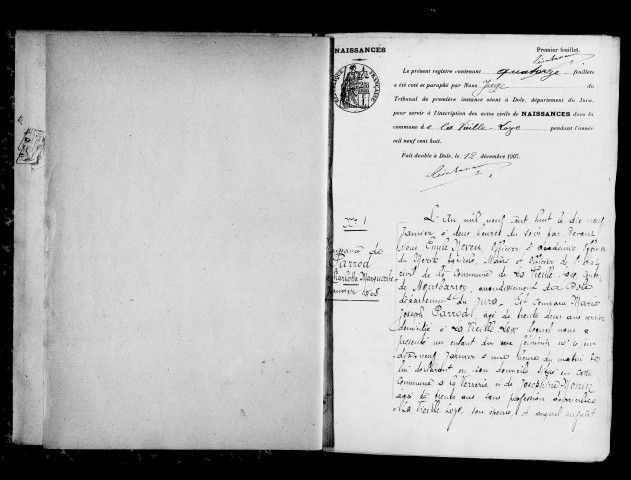 NAISSANCES
Premier feuillet.
Le présent registre contenant quatorze feuillets
a été coté et paraphé par Nous Juge du
Tribunal de première instance séant à Dole, département du Jura,
pour servir à l'inscription des actes civils de NAISSANCES dans la
commune de la Vieille-Loye pendant l'année
mil neuf cent huit.
Fait double à Dole, le 12 décembre 1907.
RÉPUBLIQUE FRANÇAISE
N° 1
Naissance de
Parrod
Charlotte Marguerite
Janvier 1908
L'An mil neuf cent huit le dix neuf
Janvier à deux heures du soir par devant
Nous Emile Officier d'académie
du Mérite Agricole, Maire et Officier de l'état
civil de la Commune de La Vieille-Loye, Canton
de Montbarrey, arrondissement de Dole
département du Jura. Est comparu Marie
Joseph Parrod, âgé de trente deux ans verrier
domicilié à La Vieille Loye lequel nous a
présenté un enfant du sexe féminin né ce jour
dix neuf Janvier à une heure du matin de
lui déclarant en son domicile situé en cette
Commune à la Verrerie et de Joséphine
âgée de trente ans sans profession domiciliée
à La Vieille Loye, son épouse, et auquel enfant